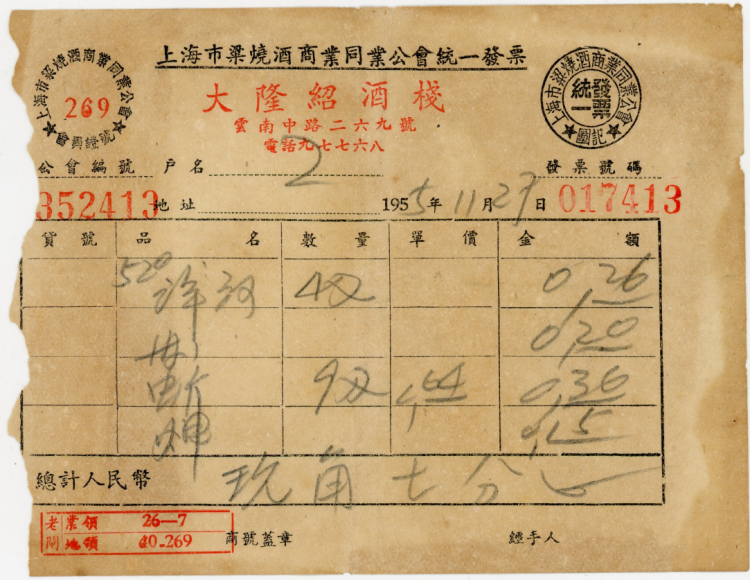 上海市梁燒酒商業同業公會統一發票
上海市梁燒酒商業同業公會
269
會員證號
大隆紹酒棧
雲南中路二六九號
電話九七七六八
上海市梁燒酒商業同業公會
統一發票
圖記
公會編號 戶名 2 發票號碼
352413 地址 1955年11月27日 017413
貨號 品名 數量 單價 金額
520 4 0,26
0,20
9 0,36
0,15
總計人民幣 玖角七分
老閘 業領 26—7
地領 40-269
商號蓋章 經手人